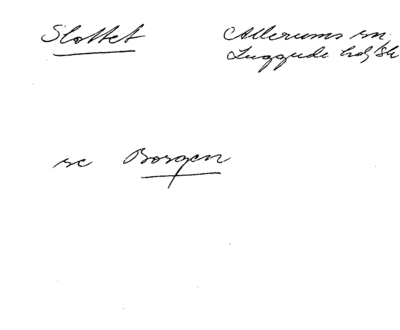 Slottet
Allerums sn,
Luggude hd, Sk
se Borgen